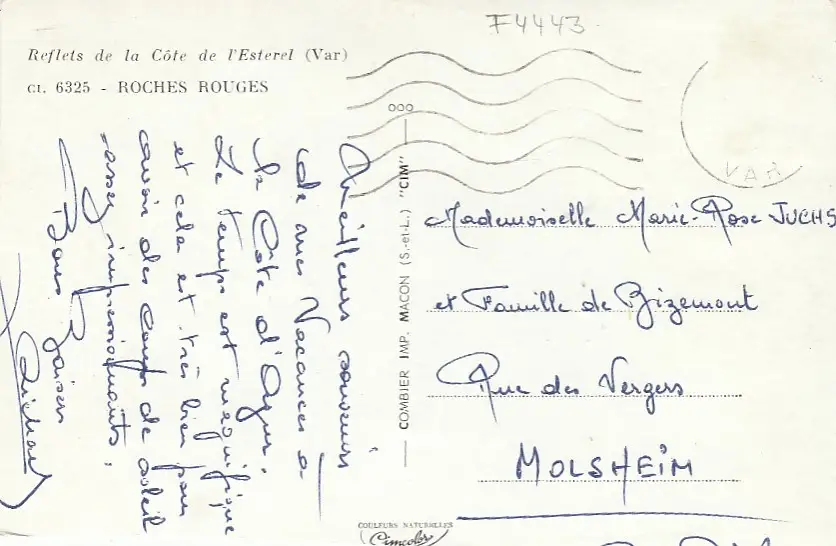 F4443
Reflets de la Côte de l'Esterel (Var)
CI. 6325 - ROCHES ROUGES
Meilleurs souvenirs
de mes Vacances à
la Côte d'Azur.
Le temps est magnifique
et cela est très bien pour
avoir des coups de soleil
assez impressionnants.
Bons Baisers
Michael
COMBIER IMP. MACON (S.-et-L.) "CIM"
VAR
Mademoiselle Marie-Rose JUCHS
et Famille de Bizemont
Rue des Vergers
MOLSHEIM
COULEURS NATURELLES
Cimcolor